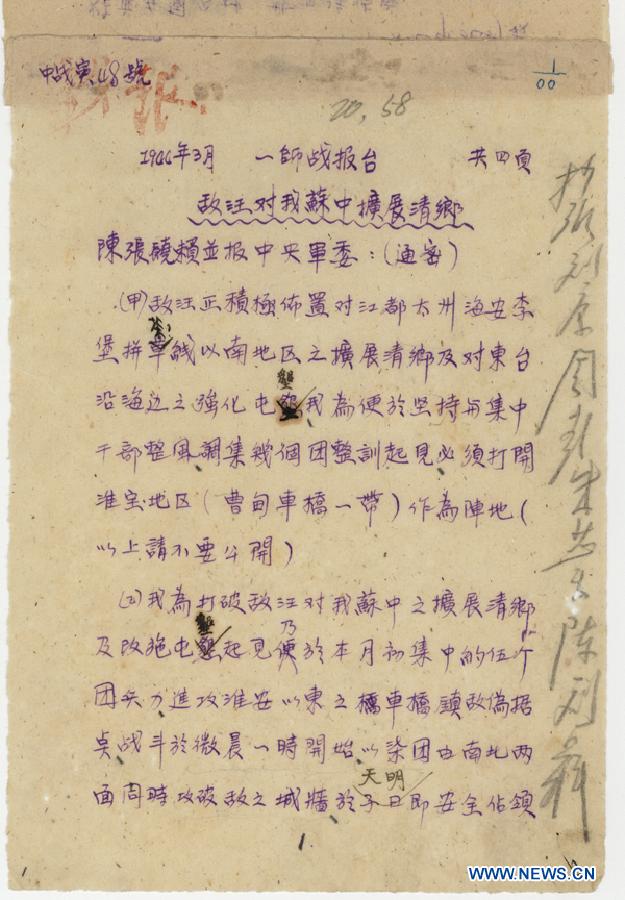 中战寅48號
1/00
20,58
1944年3月 一師战报台 共四頁
敌汪对我蘇中擴展清鄉
陳張饒賴並报中央軍委:(通密)
(甲)敌汪正積極佈置对江都太州海安李
堡拼 线以南地区之擴展清鄉及对東台
沿海边之強化屯墾我為便於坚持与集中
干部整風調集幾個团整訓起見必須打開
淮宝地区(曹甸車橋一帶)作為陣地(
以上請不要公開)
(乙)我為打破敌汪对我蘇中之擴展清鄉
及改施屯墾起見乃便於本月初集中的伍个
团兵力進攻淮安以東之 車橋鎮敌偽据
奌战斗於微晨一時開始以 团由南北兩
面同時攻破敌之城牆於天明即安全佔領
1
WWW.NEWS.CN